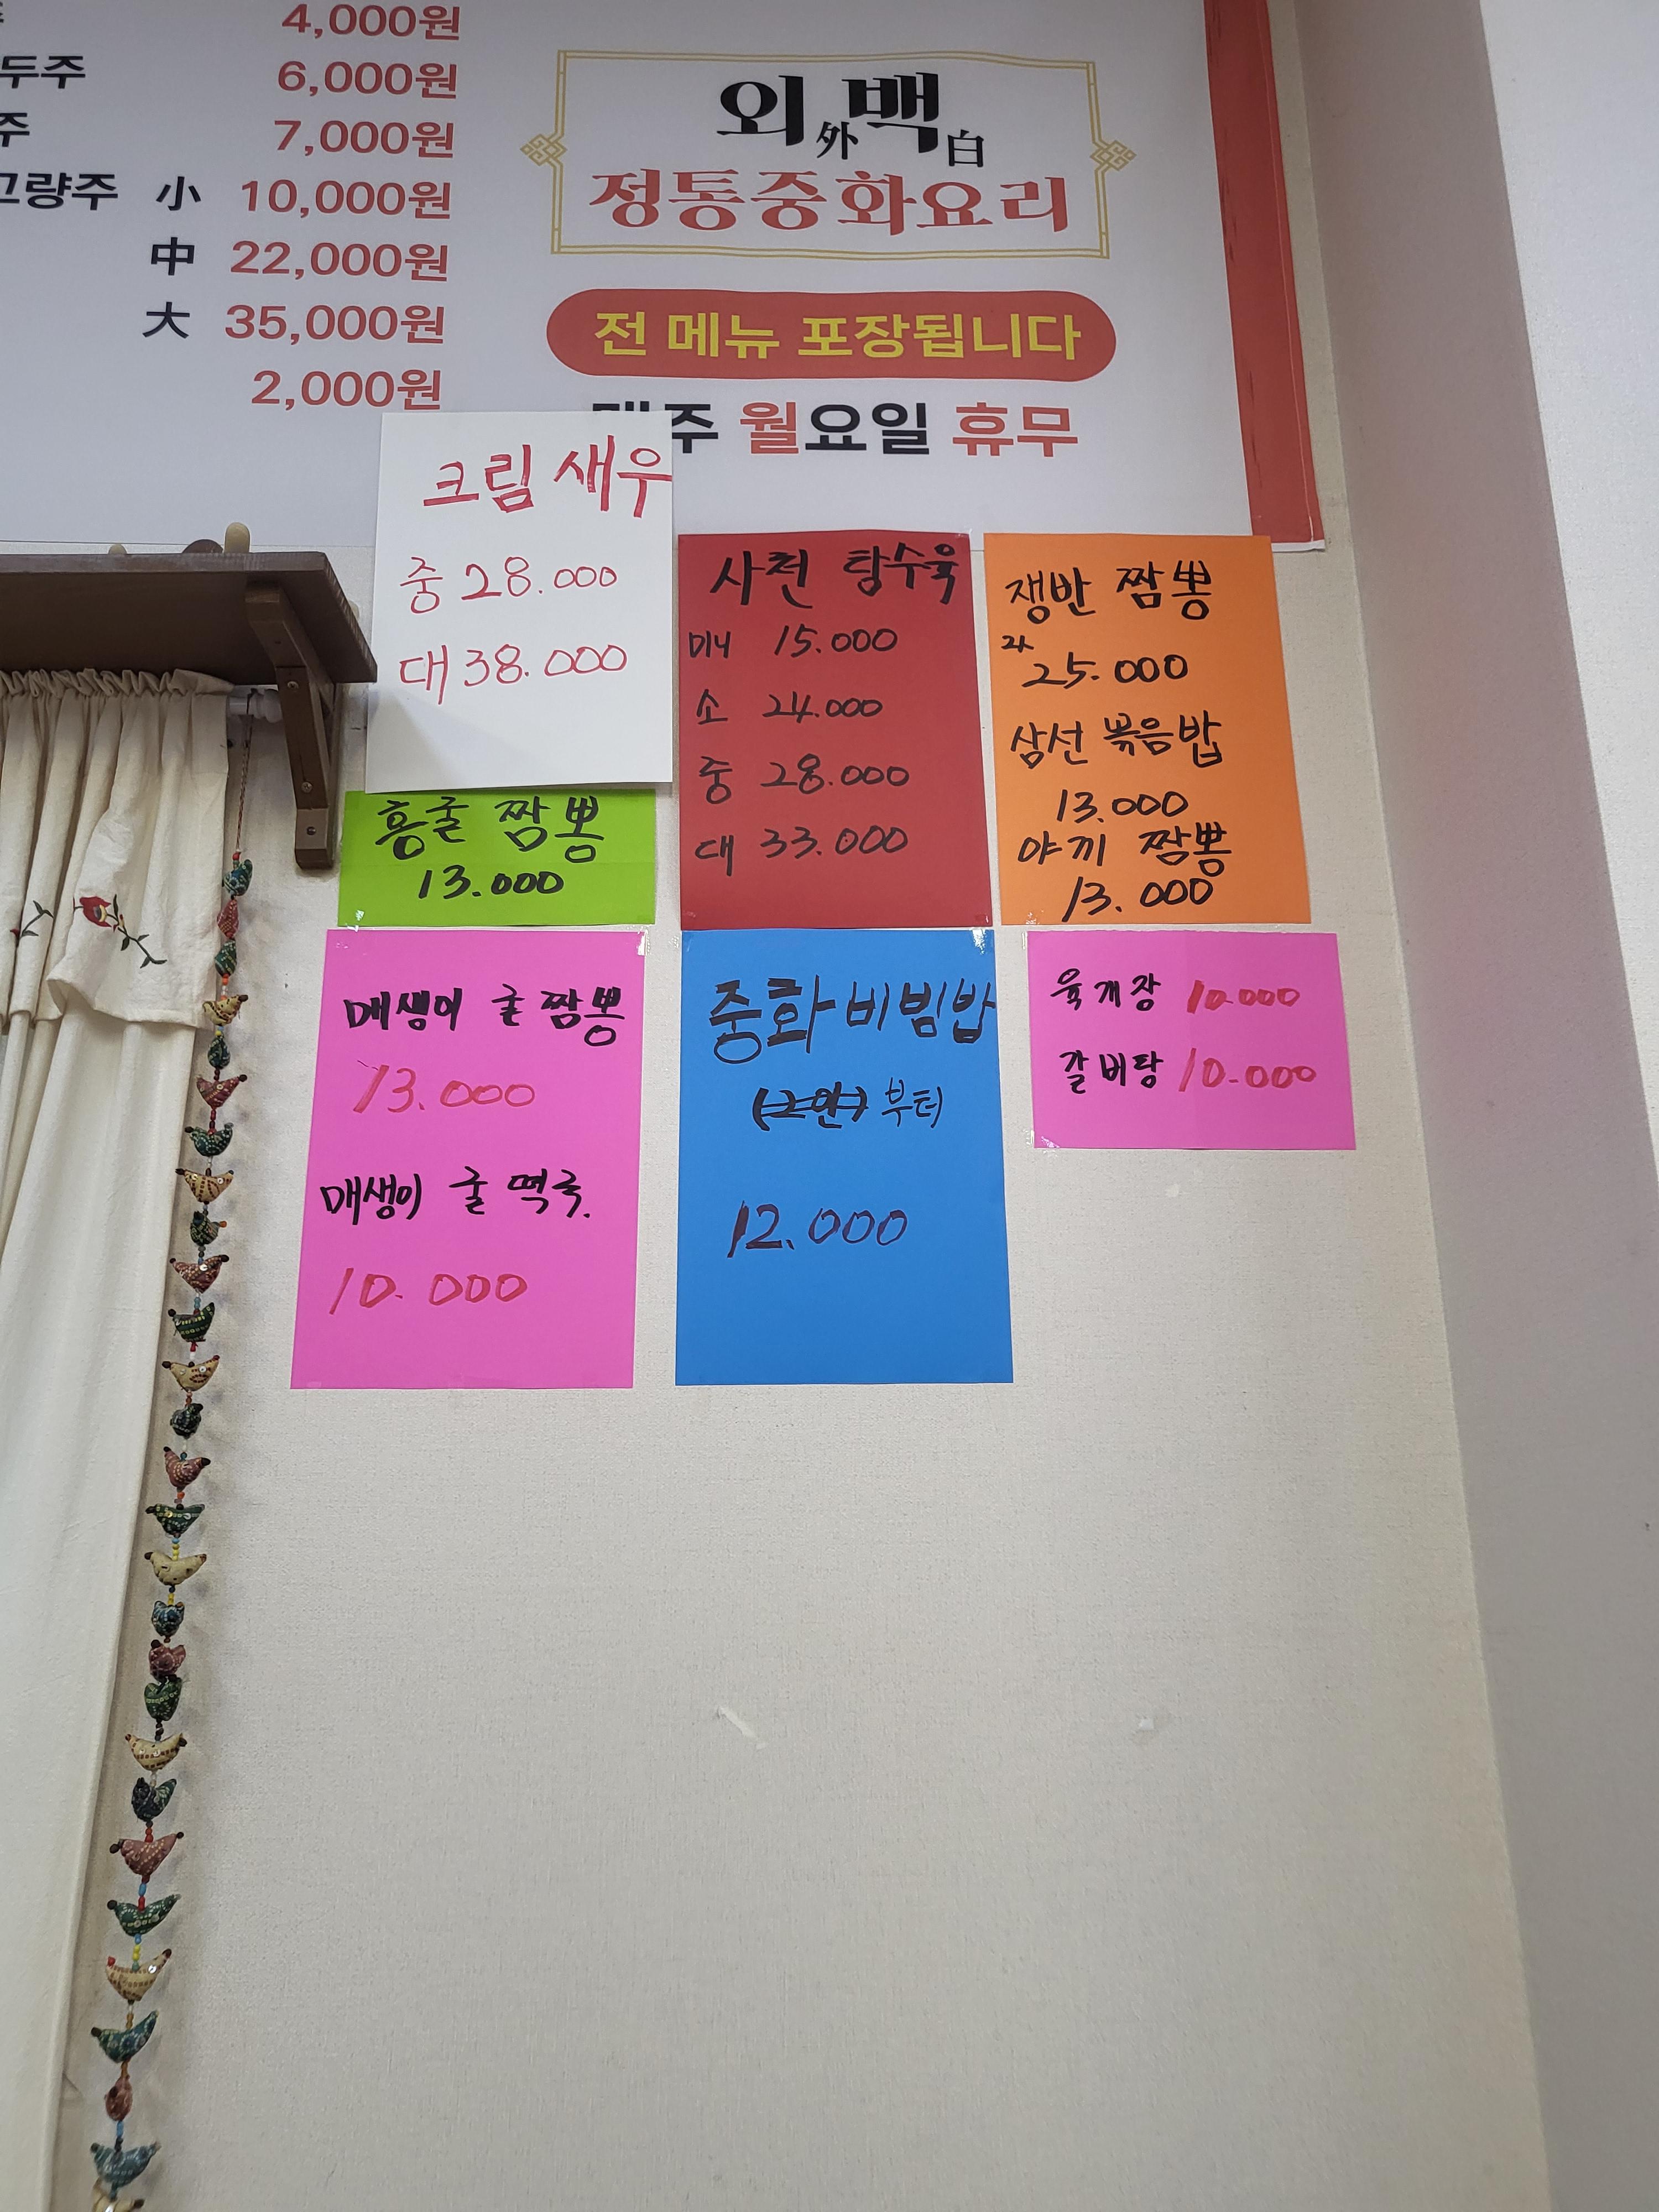 4,000원
두주 6,000원
주 7,000원
고량주 小 10,000원
中 22,000원
大 35,000원
2,000원
외外백白
정통중화요리
전 메뉴 포장됩니다
매주 월요일 휴무
크림 새우
중 28.000
대 38.000
사천 탕수육
미니 15.000
소 24.000
중 28.000
대 33.000
쟁반 짬뽕
25.000
삼선 볶음밥
13.000
야끼 짬뽕
13.000
홍굴 짬뽕
13.000
매생이 굴 짬뽕
13.000
매생이 굴 떡국.
10.000
중화비빔밥
(2인) 부터
12.000
육개장 10.000
갈비탕 10.000